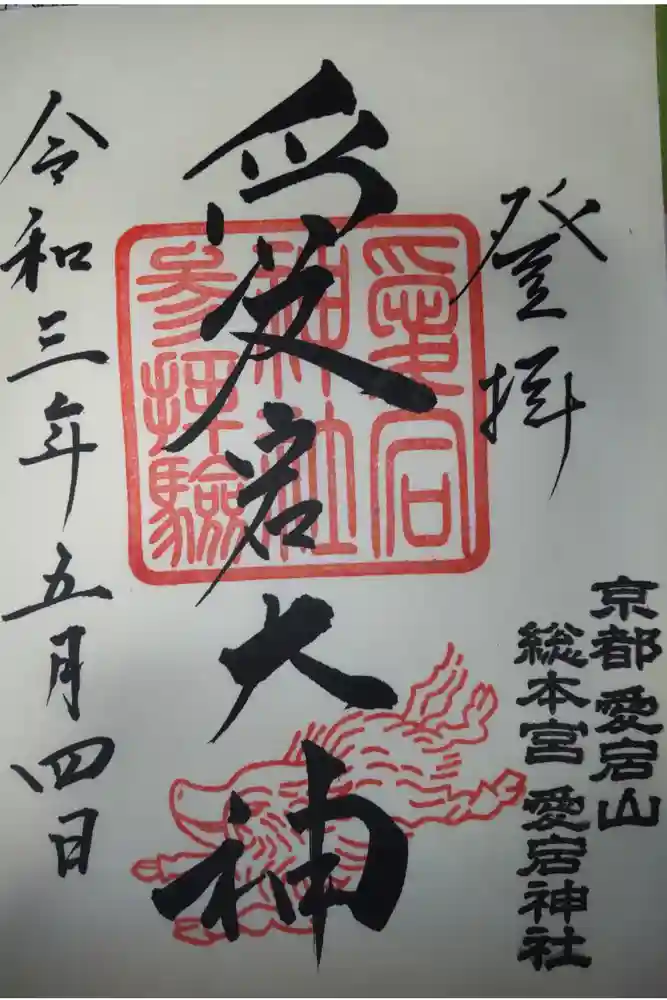 登拝
京都 愛宕山
総本宮 愛宕神社
愛宕大神
愛宕
神社
参拝験
令和三年五月四日